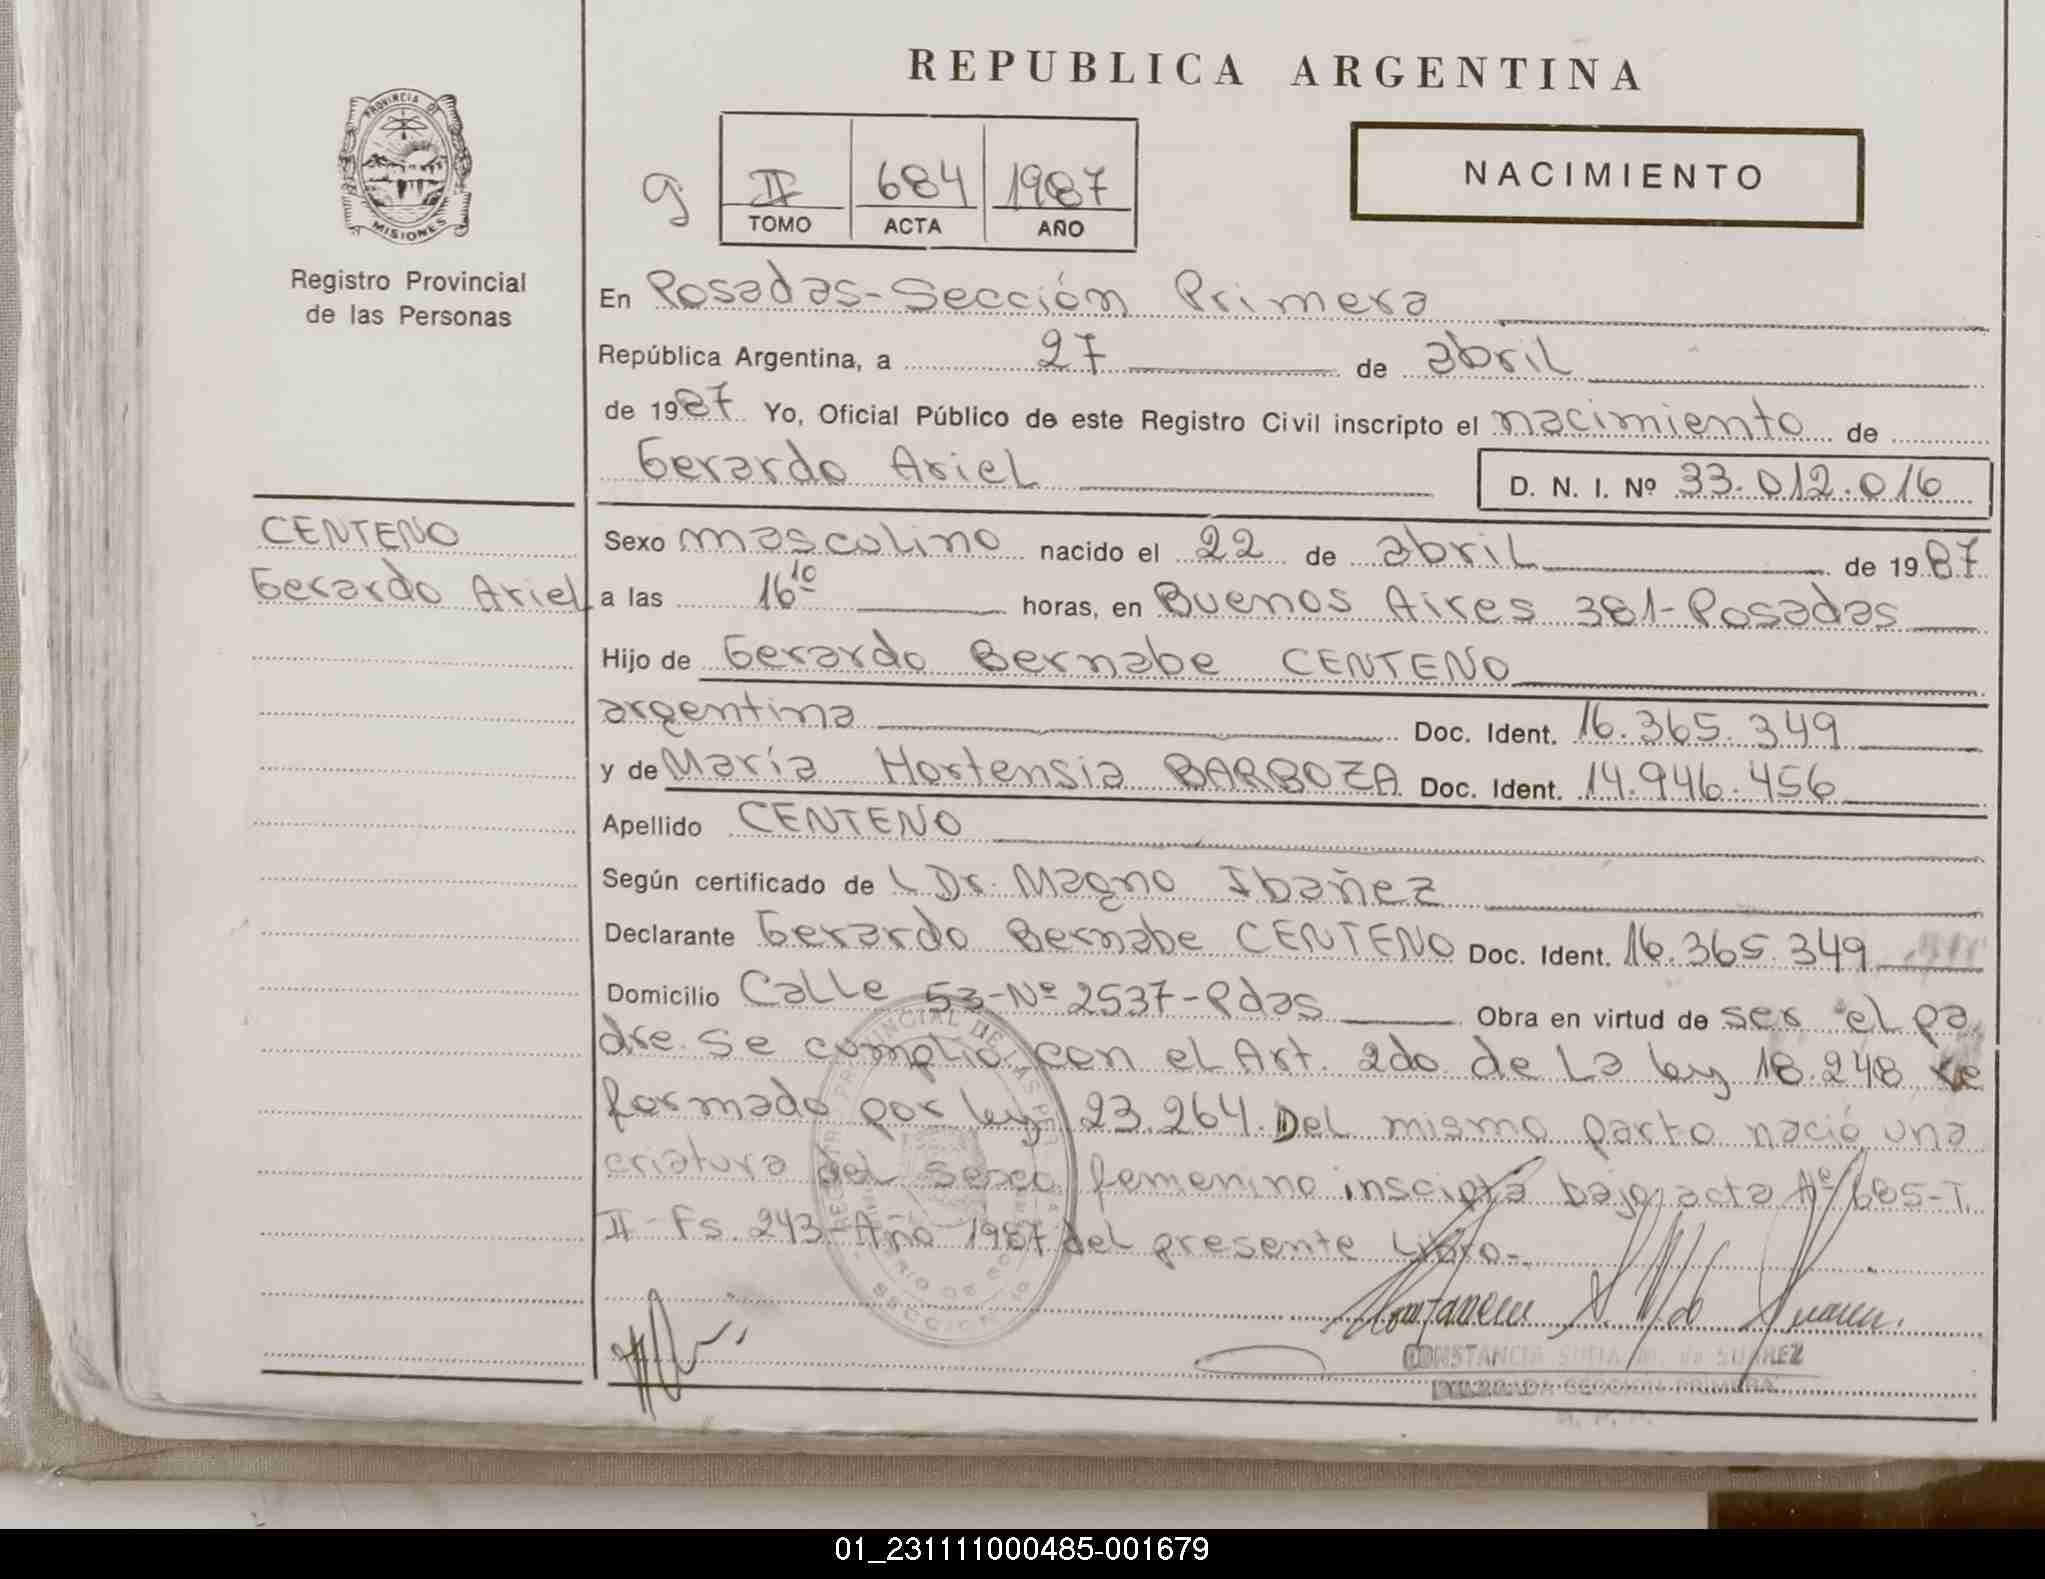 REPUBLICA ARGENTINA
PROVINCIA DE
MISIONES
Registro Provincial
de las Personas
g
II 684 1987
TOMO ACTA AÑO
NACIMIENTO
En Posadas-Sección Primera
República Argentina, a 27 de abril
de 1987 Yo, Oficial Público de este Registro Civil inscripto el nacimiento de
Gerardo Ariel D. N. I. Nº 33.012.016
CENTENO
Gerardo Ariel
Sexo mascolino nacido el 22 de abril de 1987
a las 16 10 horas, en Buenos Aires 381-Posadas
Hijo de Gerardo Bernabe CENTENO
argentina Doc. Ident. 16.365.349
y de María Hortensia BARBOZA Doc. Ident. 14.946.456
Apellido CENTENO
Según certificado de L Dr. Magno Ibañez
Declarante Gerardo Bernabe CENTENO Doc. Ident. 16.365.349
Domicilio Calle 53-Nº 2537-Pdas Obra en virtud de ser el pa
dre. Se cumplio con el Art. 2do de La ley 18.248 re
formado por ley 23.264. Del mismo parto nació una
criatura del sexo femenino inscipta bajo acta Nº 685-T.
II-Fs. 243-Año 1987 del presente Libro.-
CONSTANCIA SOFIA M. de SUAREZ
DELEGADA SECCION PRIMERA
01_231111000485-001679